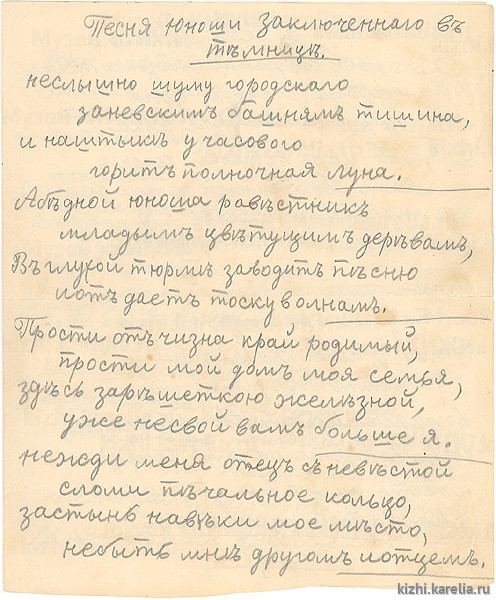 Песня юноши заключеннаго въ
тѣмницѣ.
неслышно шуму городскаго
заневскимъ башнямъ тишина,
и наштыкѣ у часового
горитъ полночная луна.
Абѣдной юноша равѣстникъ
младымъ цвѣтущимъ дерѣвамъ,
Въ глухой тюрмѣ заводитъ пѣсню
иотъ даетъ тоску волнамъ.
Прости отъчизна край родимый,
прости мой домъ моя семья,
здѣсь зарѣшеткою желѣзной,
уже несвой вамъ больше я.
нежди меня отецъ съневѣстой
сломи пѣчальное кольцо,
застынь навѣки мое мѣсто,
небыть мнѣ другомъ иотцемъ.
kizhi.karelia.ru